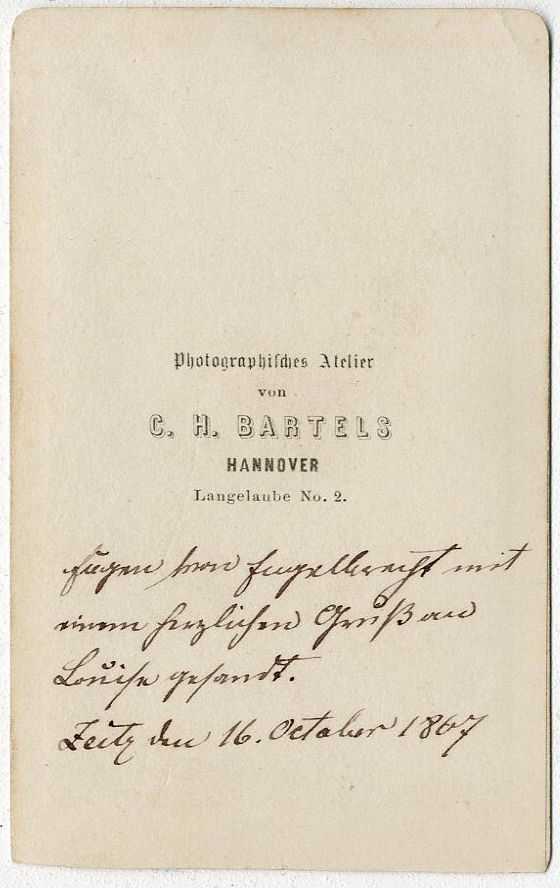 Photographisches Atelier
von
C. H. BARTELS
HANNOVER
Langelaube No. 2.
Eugen von Engelbrecht mit
einem herzlichen Gruß an
Louise gesandt.
Zeitz den 16. October 1867